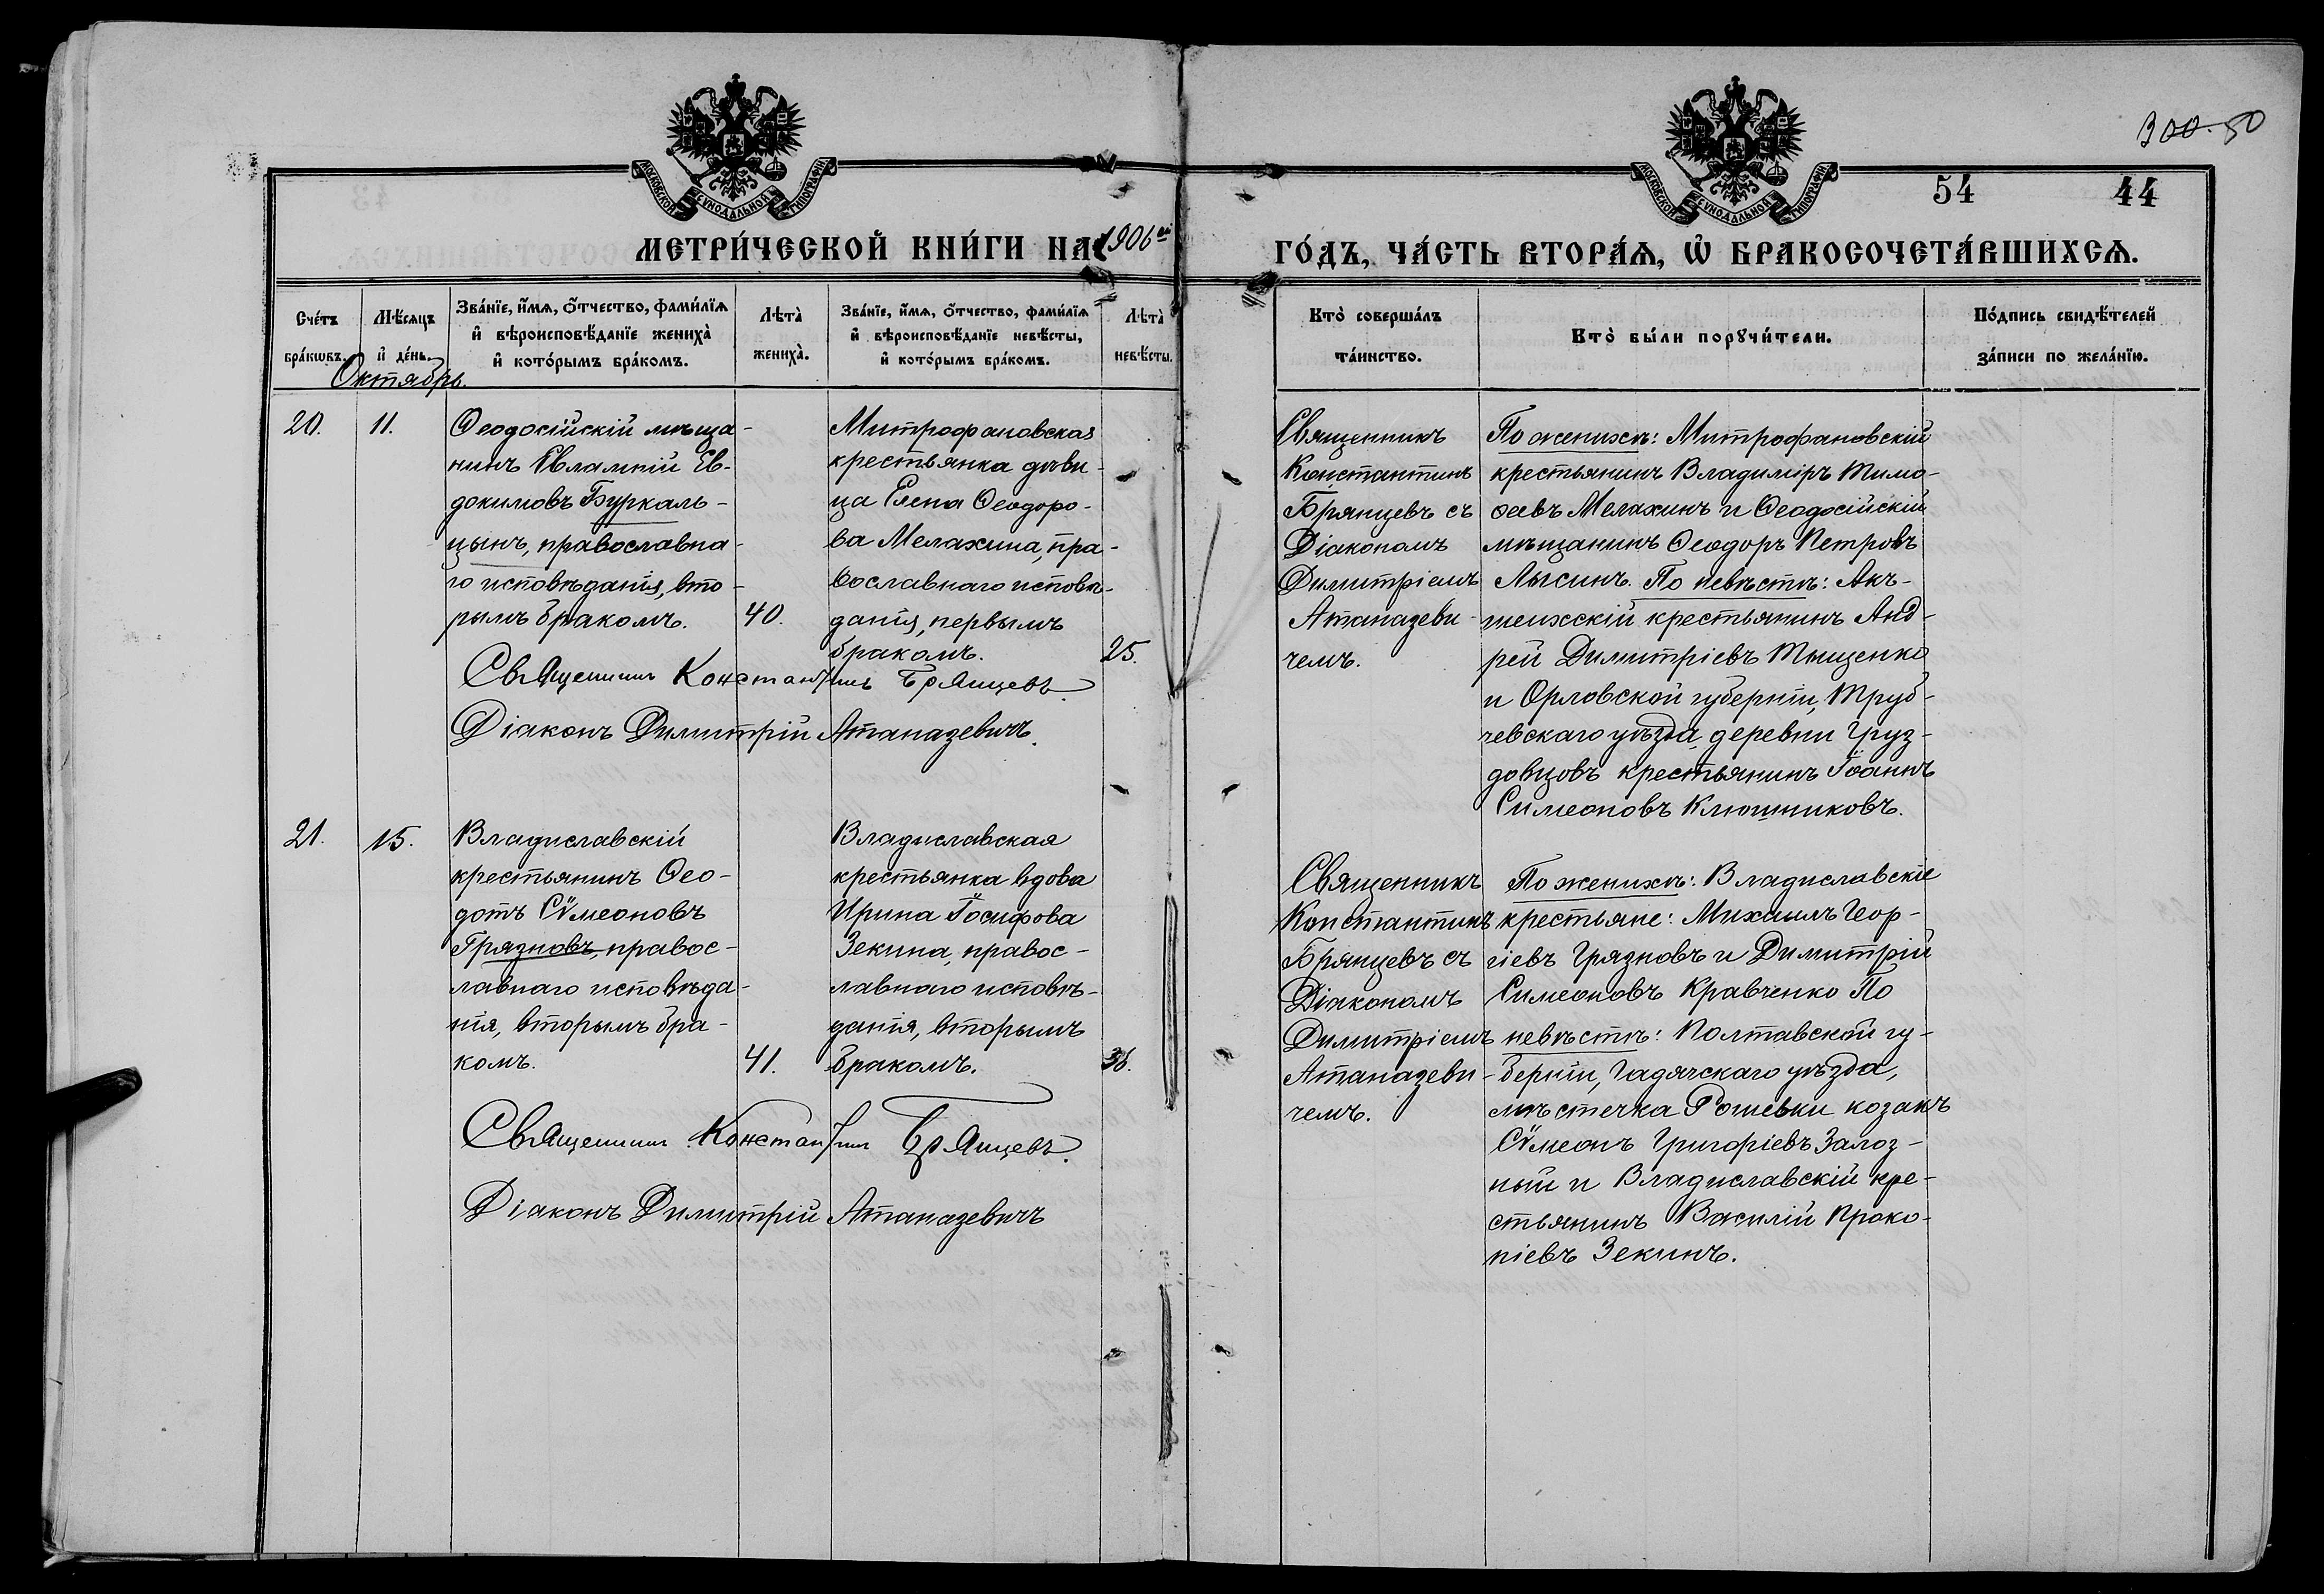 300-50
54
44
МОСКОВСКОЙ СѴНОДАЛЬНОЙ ТИПОГРАФІИ
МОСКОВСКОЙ СѴНОДАЛЬНОЙ ТИПОГРАФІИ
МЕТРИ́ЧЕСКОЙ КНИ́ГИ НА 1906ый
ГО́ДЪ, ЧА́СТЬ ВТОРА́Ѧ, Ѡ҆ БРАКОСОЧЕТА́ВШИХСѦ.
Сче́тъ
бра́кѡвъ.
Мѣ́сѧцъ
и҆ де́нь.
Зва́нїе, и҆́мѧ, ѻ҆́тчество, фами́лїѧ
и҆ вѣроисповѣ́данїе жениха̀
и҆ кото́рымъ бра́комъ.
Лѣта̀
жениха̀.
Зва́нїе, и҆́мѧ, ѻ҆́тчество, фами́лїѧ
и҆ вѣроисповѣ́данїе невѣ́сты,
и҆ кото́рымъ бра́комъ.
Лѣта̀
невѣ́сты.
Кто̀ соверша́лъ
та́инство.
Кто̀ бы́ли порꙋчи́тели.
По́дпись свидѣ́телей
за́писи по жела́нїю.
Октябрь.
20.
11.
Ѳеодосійскій мѣща-
нинъ Евлампій Ев-
докимовъ Буркаль-
цынъ, православна-
го исповѣданія, вто-
рымъ бракомъ.
40.
Митрофановская
крестьянка дѣви-
ца Елена Ѳеодоро-
ва Мелахина, пра-
вославнаго исповѣ-
данія, первымъ
бракомъ.
25.
Священникъ
Константинъ
Брянцевъ съ
Діакономъ
Димитріемъ
Атаназеви-
чемъ.
По женихѣ: Митрофановскій
крестьянинъ Владиміръ Тимо-
ѳеевъ Мелахинъ и Ѳеодосійскій
мѣщанинъ Ѳеодоръ Петровъ
Лысинъ. По невѣстѣ: Акъ-
шеихскій крестьянинъ Анд-
рей Димитріевъ Тыщенко
и Орловской губерніи, Труб-
чевскаго уѣзда, деревни Груз-
довцовъ крестьянинъ Іоаннъ
Симеоновъ Клюшниковъ.
Священникъ Константинъ Брянцевъ
Діаконъ Димитрій Атаназевичъ.
21.
15.
Владиславскій
крестьянинъ Ѳео-
дотъ Сѵмеоновъ
Грязновъ, правос-
лавнаго исповѣда-
нія, вторымъ бра-
комъ.
41.
Владиславская
крестьянка вдова
Ирина Іосифова
Зекина, правос-
лавнаго исповѣ-
данія, вторымъ
бракомъ.
36.
Священникъ
Константинъ
Брянцевъ съ
Діакономъ
Димитріемъ
Атаназеви-
чемъ.
По женихѣ: Владиславскіе
крестьяне: Михаилъ Геор-
гіевъ Грязновъ и Димитрій
Симеоновъ Кравченко По
невѣстѣ: Полтавской гу-
берніи, Гадячскаго уѣзда,
мѣстечка Рашевки козакъ
Сѵмеонъ Григоріевъ Залоз-
ный и Владиславскій кре-
стьянинъ Василій Проко-
піевъ Зекинъ.
Священникъ Константинъ Брянцевъ.
Діаконъ Димитрій Атаназевичъ